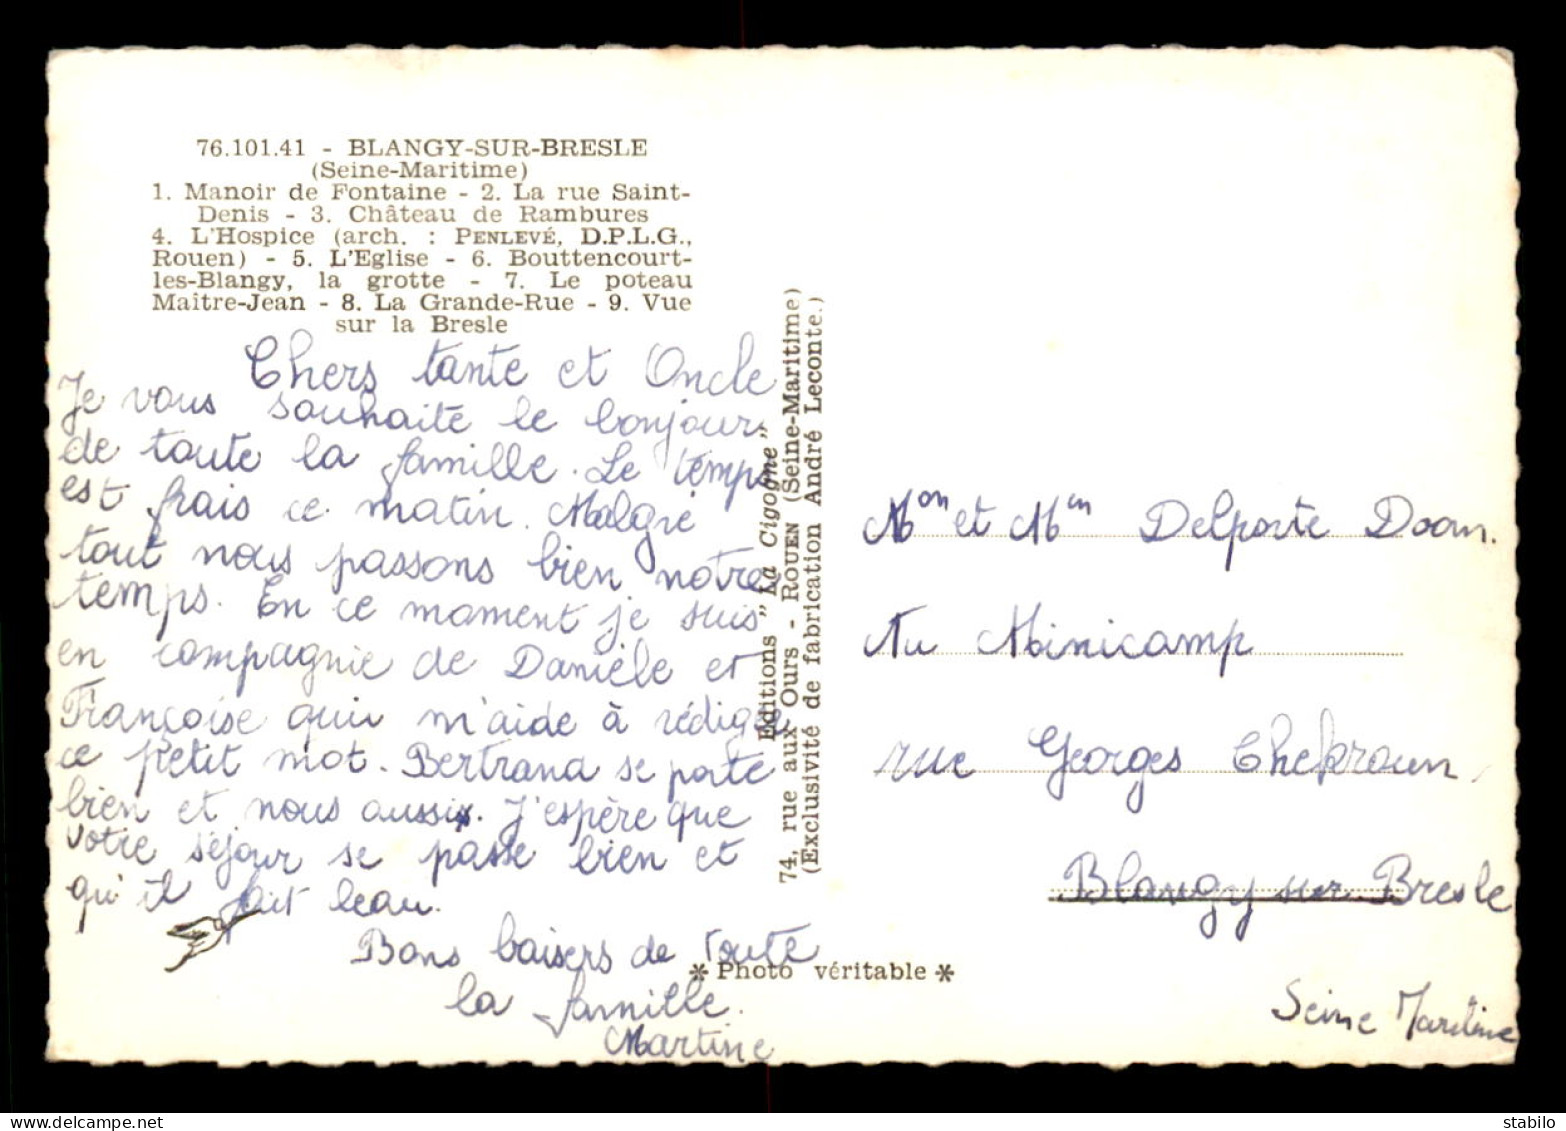 76.101.41 - BLANGY-SUR-BRESLE
(Seine-Maritime)
1. Manoir de Fontaine - 2. La rue Saint-
Denis - 3. Château de Rambures
4. L'Hospice (arch. : PENLEVÉ, D.P.L.G.,
Rouen) - 5. L'Eglise - 6. Bouttencourt-
les-Blangy, la grotte - 7. Le poteau
Maître-Jean - 8. La Grande-Rue - 9. Vue
sur la Bresle
Chers tante et Oncle
Je vous souhaite le bonjour
de toute la famille. Le temps
est frais ce matin. Malgré
tout nous passons bien notre
temps. En ce moment je suis
en compagnie de Danièle et
Françoise qui m'aide à rédiger
ce petit mot. Bertrand se porte
bien et nous aussi. J'espère que
votre séjour se passe bien et
qu'il fait beau.
Bons baisers de toute
la famille.
Martine
Editions "La Cigogne"
74, rue aux Ours - ROUEN (Seine-Maritime)
(Exclusivité de fabrication André Leconte.)
* Photo véritable *
Mon et Mm Delporte Doom.
Au Minicamp
rue Georges Chekroun
Blangy sur Bresle
Seine Maritime
stabilo